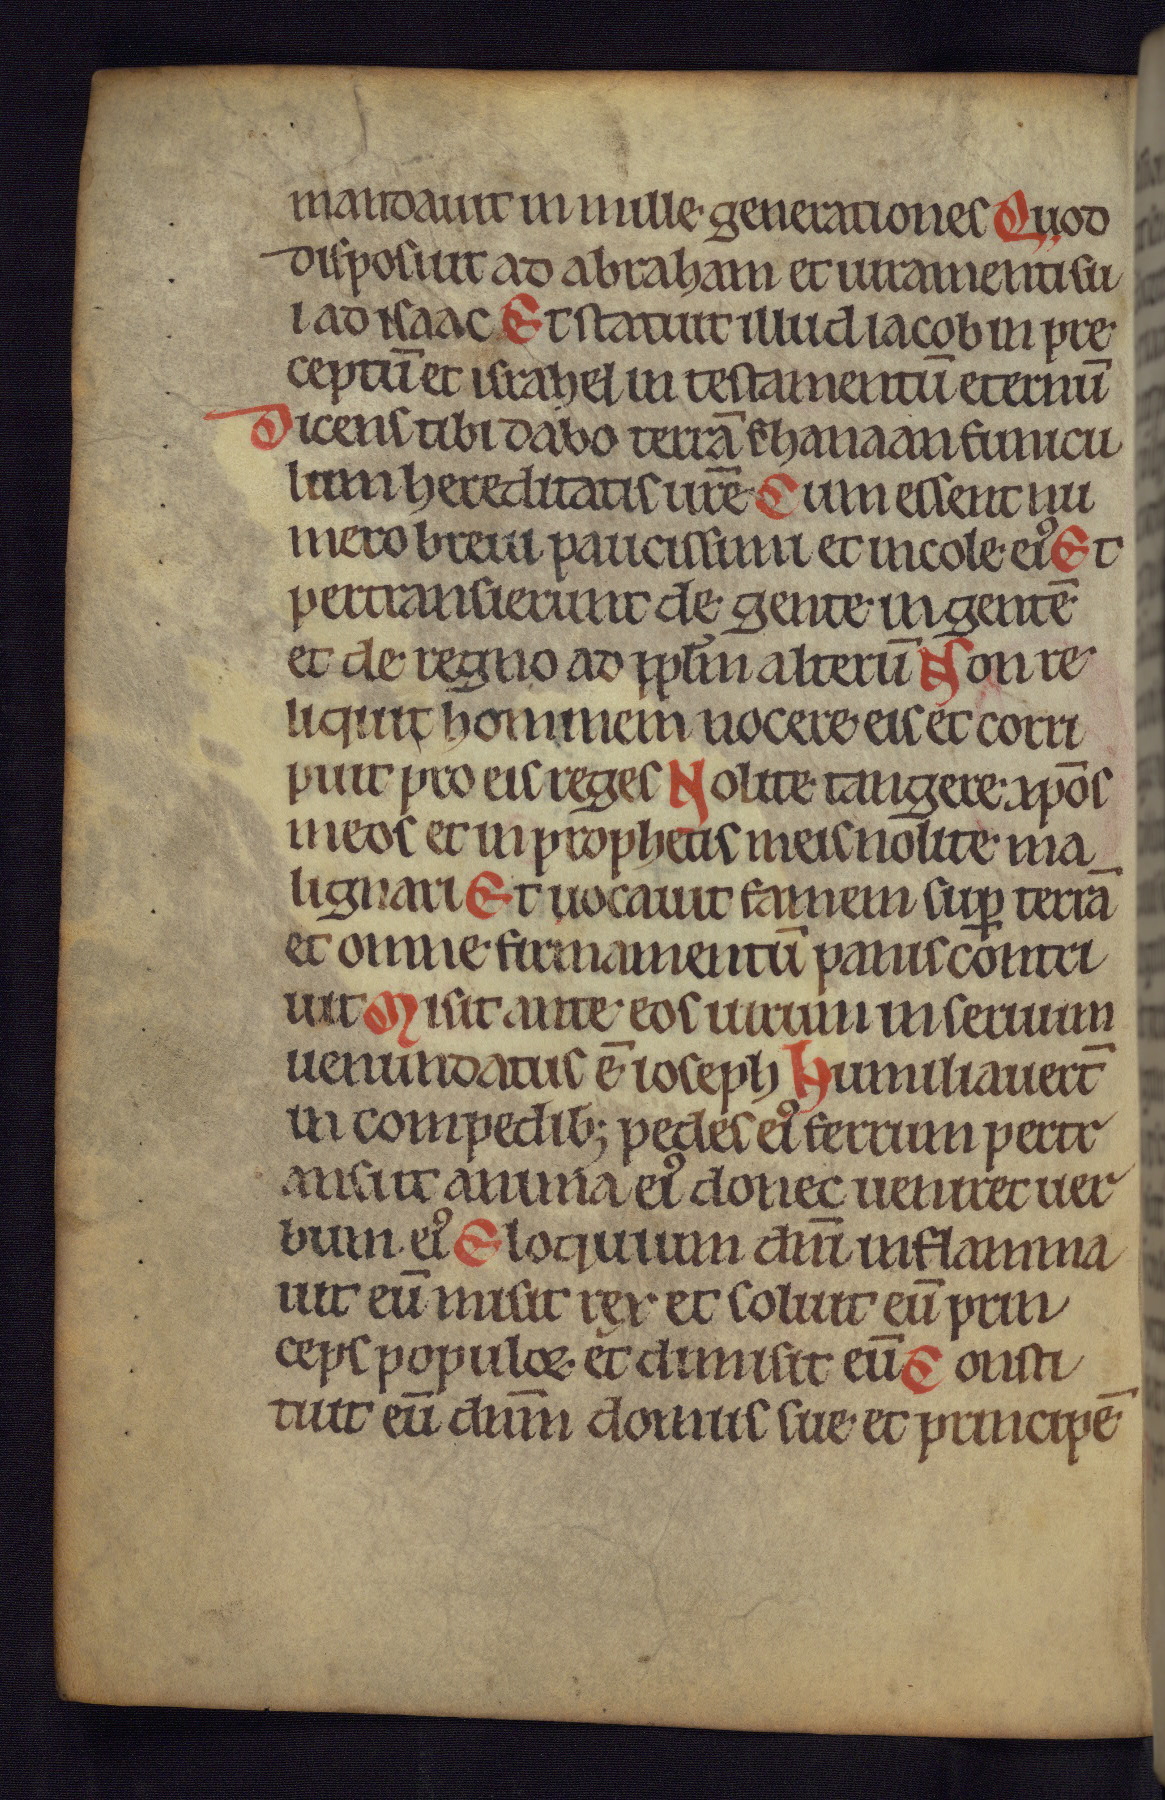 mandauit in mille generationes Quod
disposuit ad abraham et iuramenti su
i ad isaac Et statuit illud iacob in pre
ceptū et israhel in testamentū eternū
Dicens tibi dabo terrā chanaan funicu
lum hereditatis ur̄e Cum essent nu
mero breui paucissimi et incole ei᾽ Et
pertransierunt de gente in gentē
et de regno ad ppl̄m alterū Non re
liquit hominem nocere eis et corri
puit pro eis reges Nolite tangere xp̄os
meos et in prophetis meis nolite ma
lignari Et uocauit famem suꝑ terrā
et omne firmamentū panis contri
uit Misit ante eos uirum in seruum
uenundatus ē ioseph Humiliauert̄
in compedib; pedes ei᾽ ferrum pertr
ansiit anima ei᾽ donec ueniret uer
bum ei᾽ Eloquium dn̄i inflamma
uit eū misit rex et soluit eū prin
ceps populoꝝ et dimisit eū Consti
tuit eū dn̄m domus sue et principē